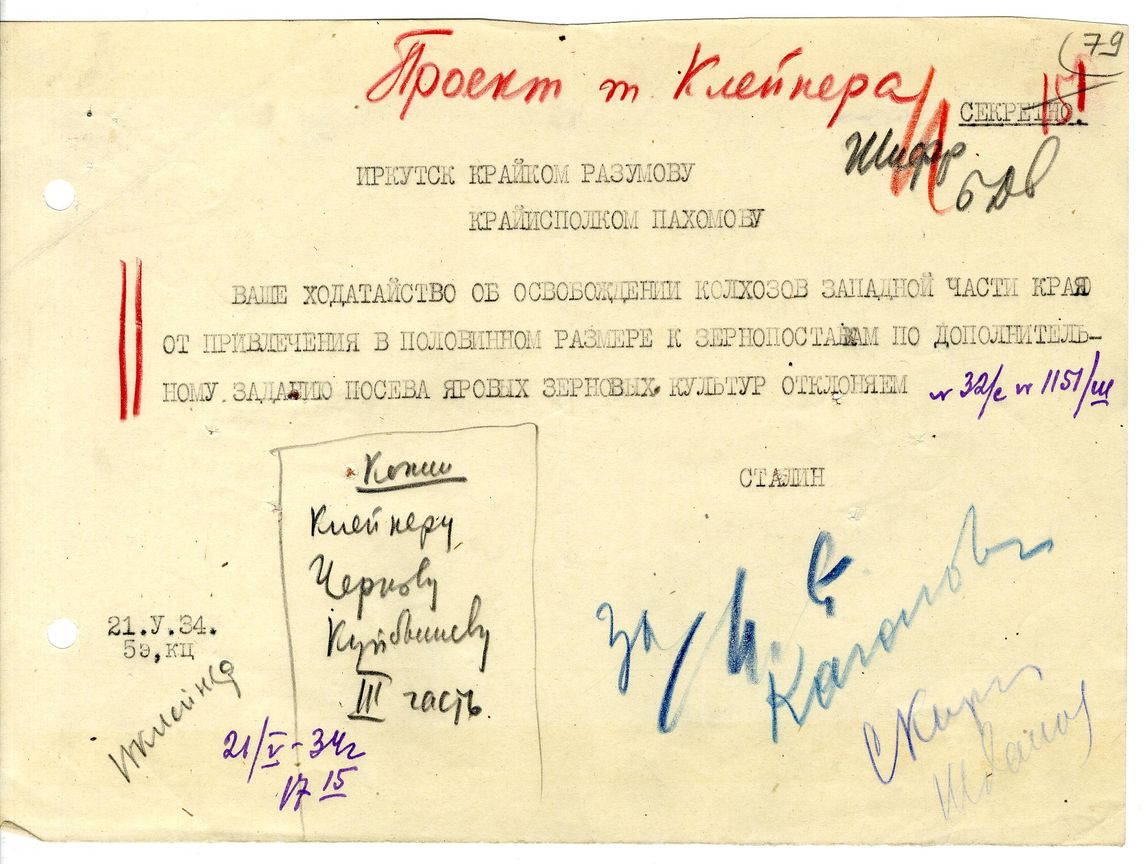 79
Проект т Клейнера
СЕКРЕТНО.
Шифр
ИРКУТСК КРАЙКОМ РАЗУМОВУ
КРАЙИСПОЛКОМ ПАХОМОВУ
ВАШЕ ХОДАТАЙСТВО ОБ ОСВОБОЖДЕНИИ КОЛХОЗОВ ЗАПАДНОЙ ЧАСТИ КРАЯ
ОТ ПРИВЛЕЧЕНИЯ В ПОЛОВИННОМ РАЗМЕРЕ К ЗЕРНОПОСТАВКАМ ПО ДОПОЛНИТЕЛЬ-
НОМУ ЗАДАНИЮ ПОСЕВА ЯРОВЫХ ЗЕРНОВЫХ КУЛЬТУР ОТКЛОНЯЕМ
32/с 1151/ш
СТАЛИН
Копии
Клейнеру
Чернову
Куйбышеву
III часть
21.У.34.
5э,кц
21/V-34г
17 15
За
И. Ст.
Каганович